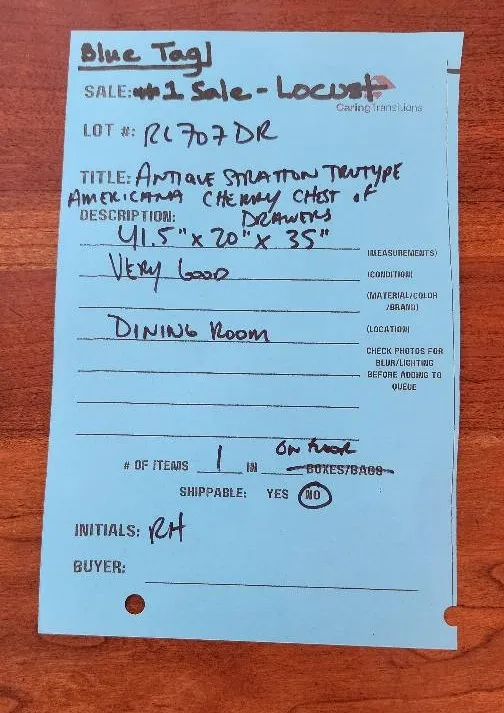 Blue Tag
SALE: #1 Sale - Locust
CaringTransitions
LOT #: RL707DR
TITLE: ANTIQUE STRATTON TRUTYPE
AMERICANA CHERRY CHEST OF
DESCRIPTION: DRAWERS
41.5" x 20" x 35"
(MEASUREMENTS)
VERY GOOD
(CONDITION)
(MATERIAL/COLOR
/BRAND)
DINING ROOM
(LOCATION)
CHECK PHOTOS FOR
BLUR/LIGHTING
BEFORE ADDING TO
QUEUE
ON FLOOR
# OF ITEMS 1 IN BOXES/BAGS
SHIPPABLE: YES NO
INITIALS: RH
BUYER: